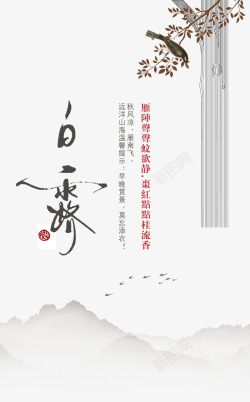 雁陣聲聲蚊欲静,棗紅點點桂流香
秋风凉,雁南飞。
远洋山海温馨提示:早晚赏景、莫忘添衣!
白露